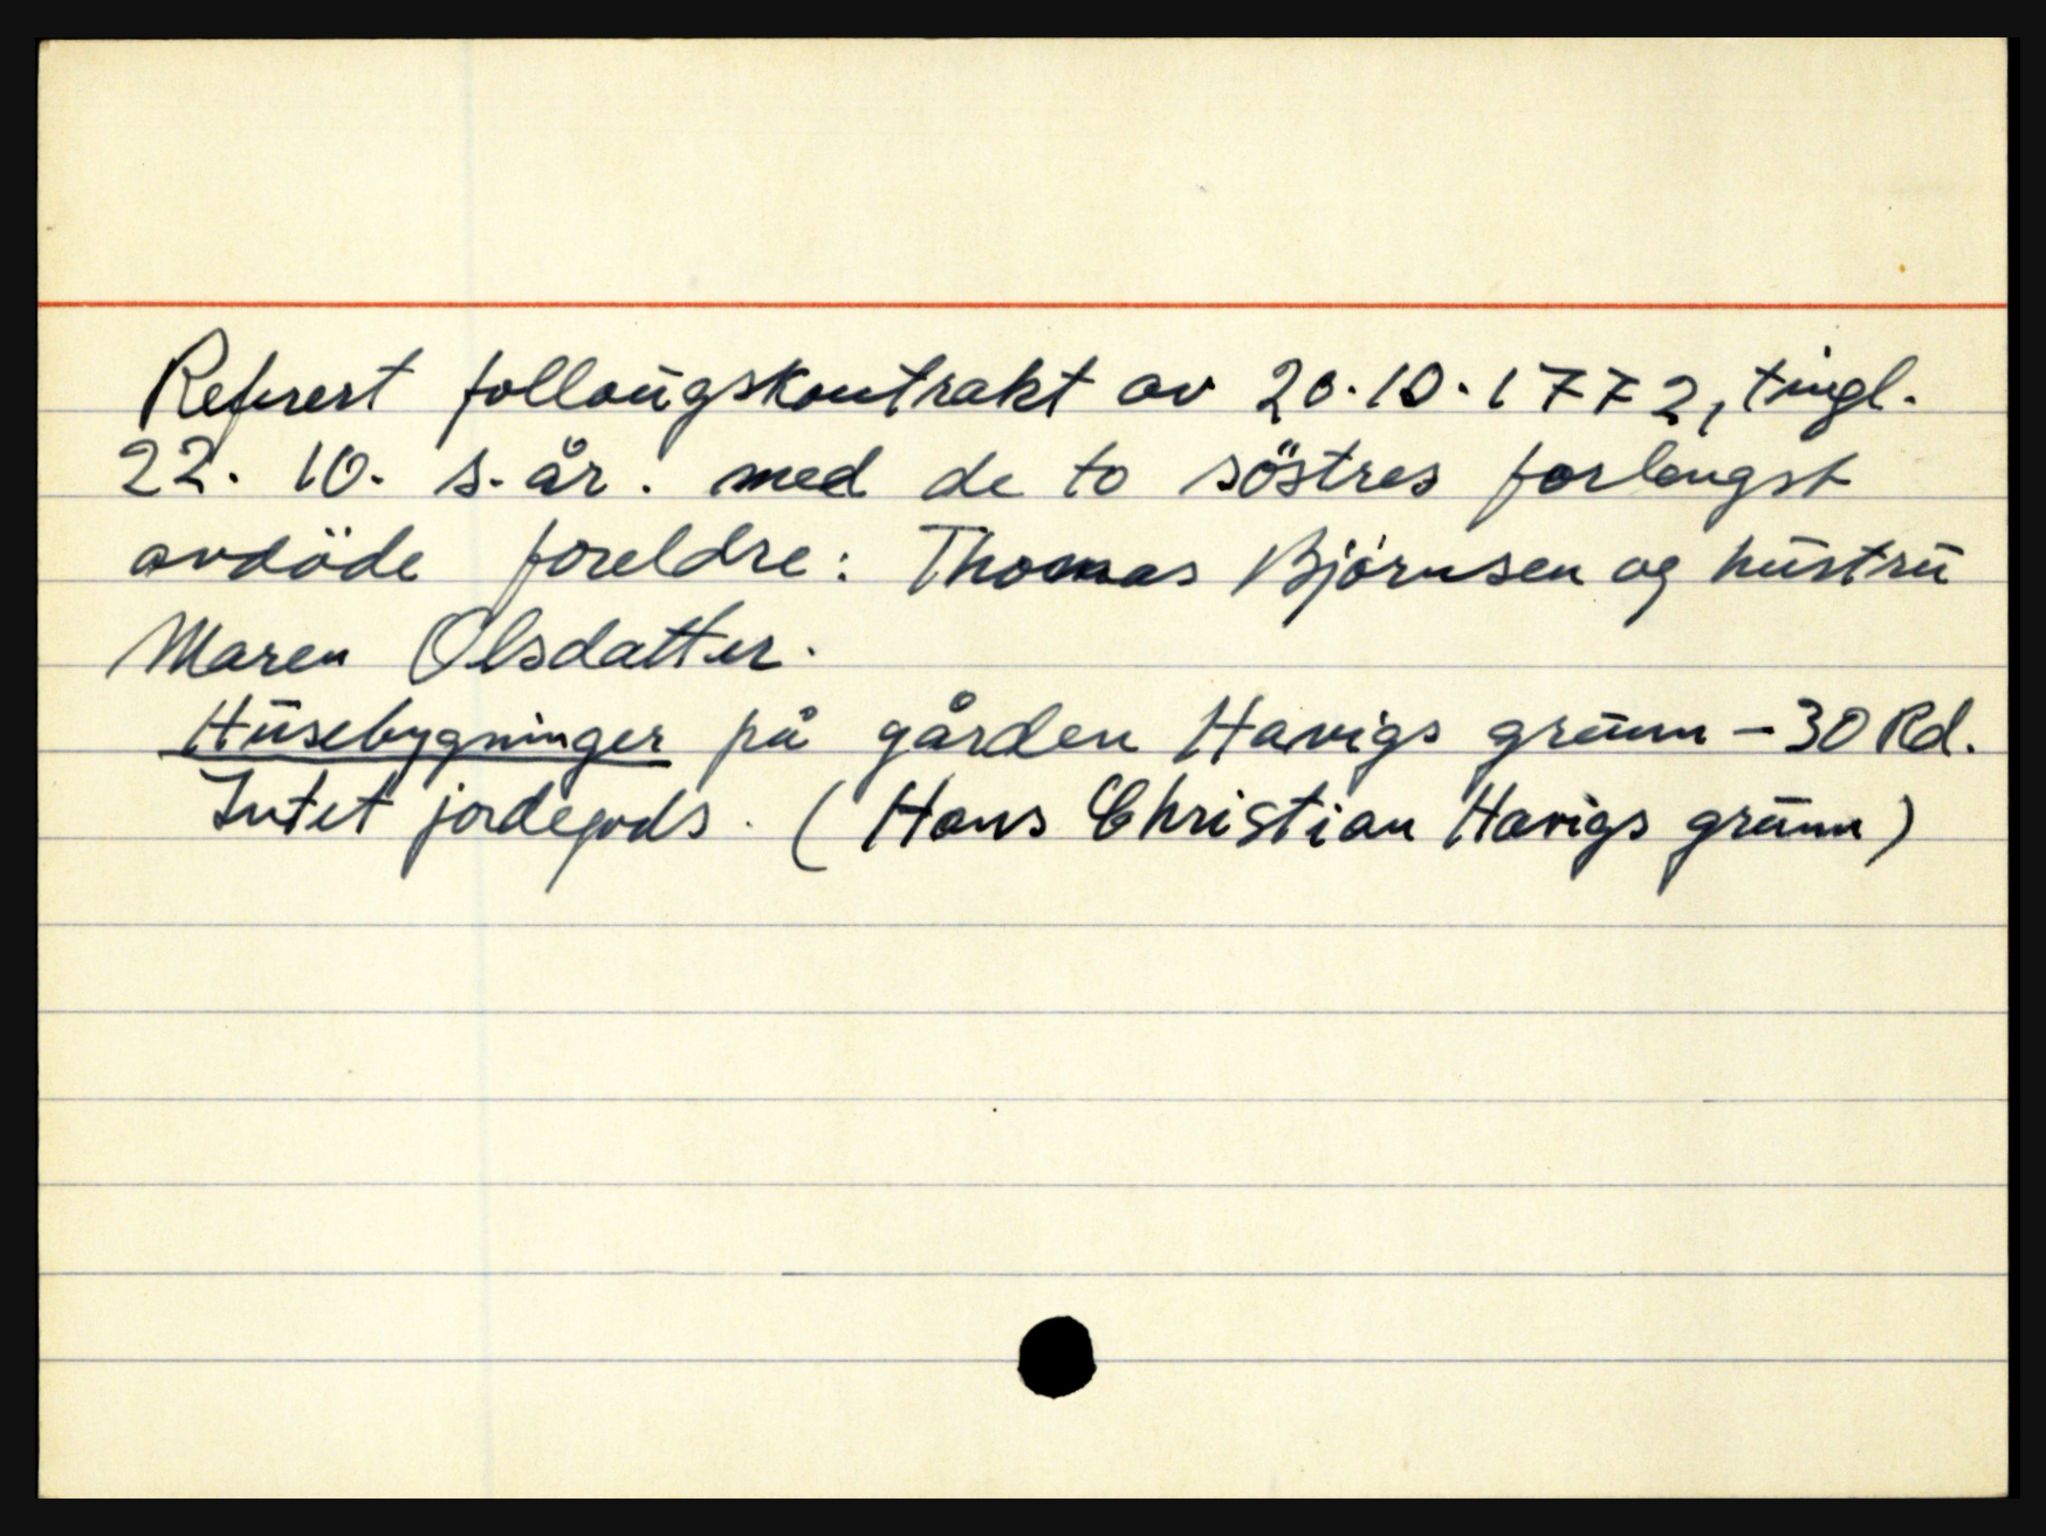 Referert follaugskontrakt av 20.10.1772, tingl.
22. 10. s. år. med de to söstres forlengst
avdöde foreldre: Thomas Bjørnsen og hustru
Maren Olsdatter.
Husebygninger på gården Havigs grunn – 30 Rd.
Intet jordegods. (Hans Christian Havigs grunn)